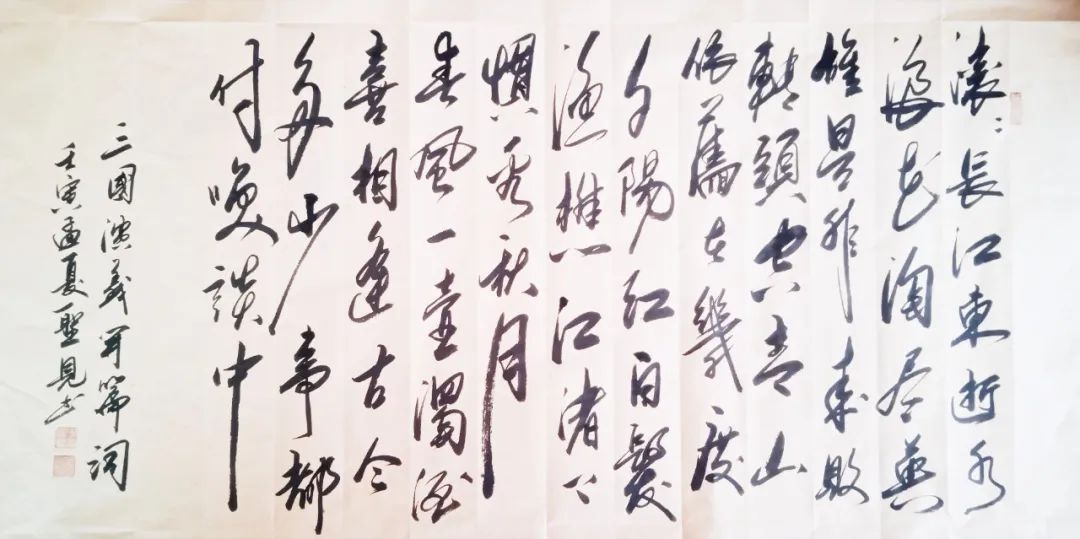 滚〻長江東逝水
浪花淘尽英
雄是非成敗
轉頭空青山
依舊在幾度
夕陽紅白髮
漁樵江渚上
慣看秋月
春風一壺濁酒
喜相逢古今
多少事都
付笑談中
三國演義开篇詞
壬寅孟夏聖見书